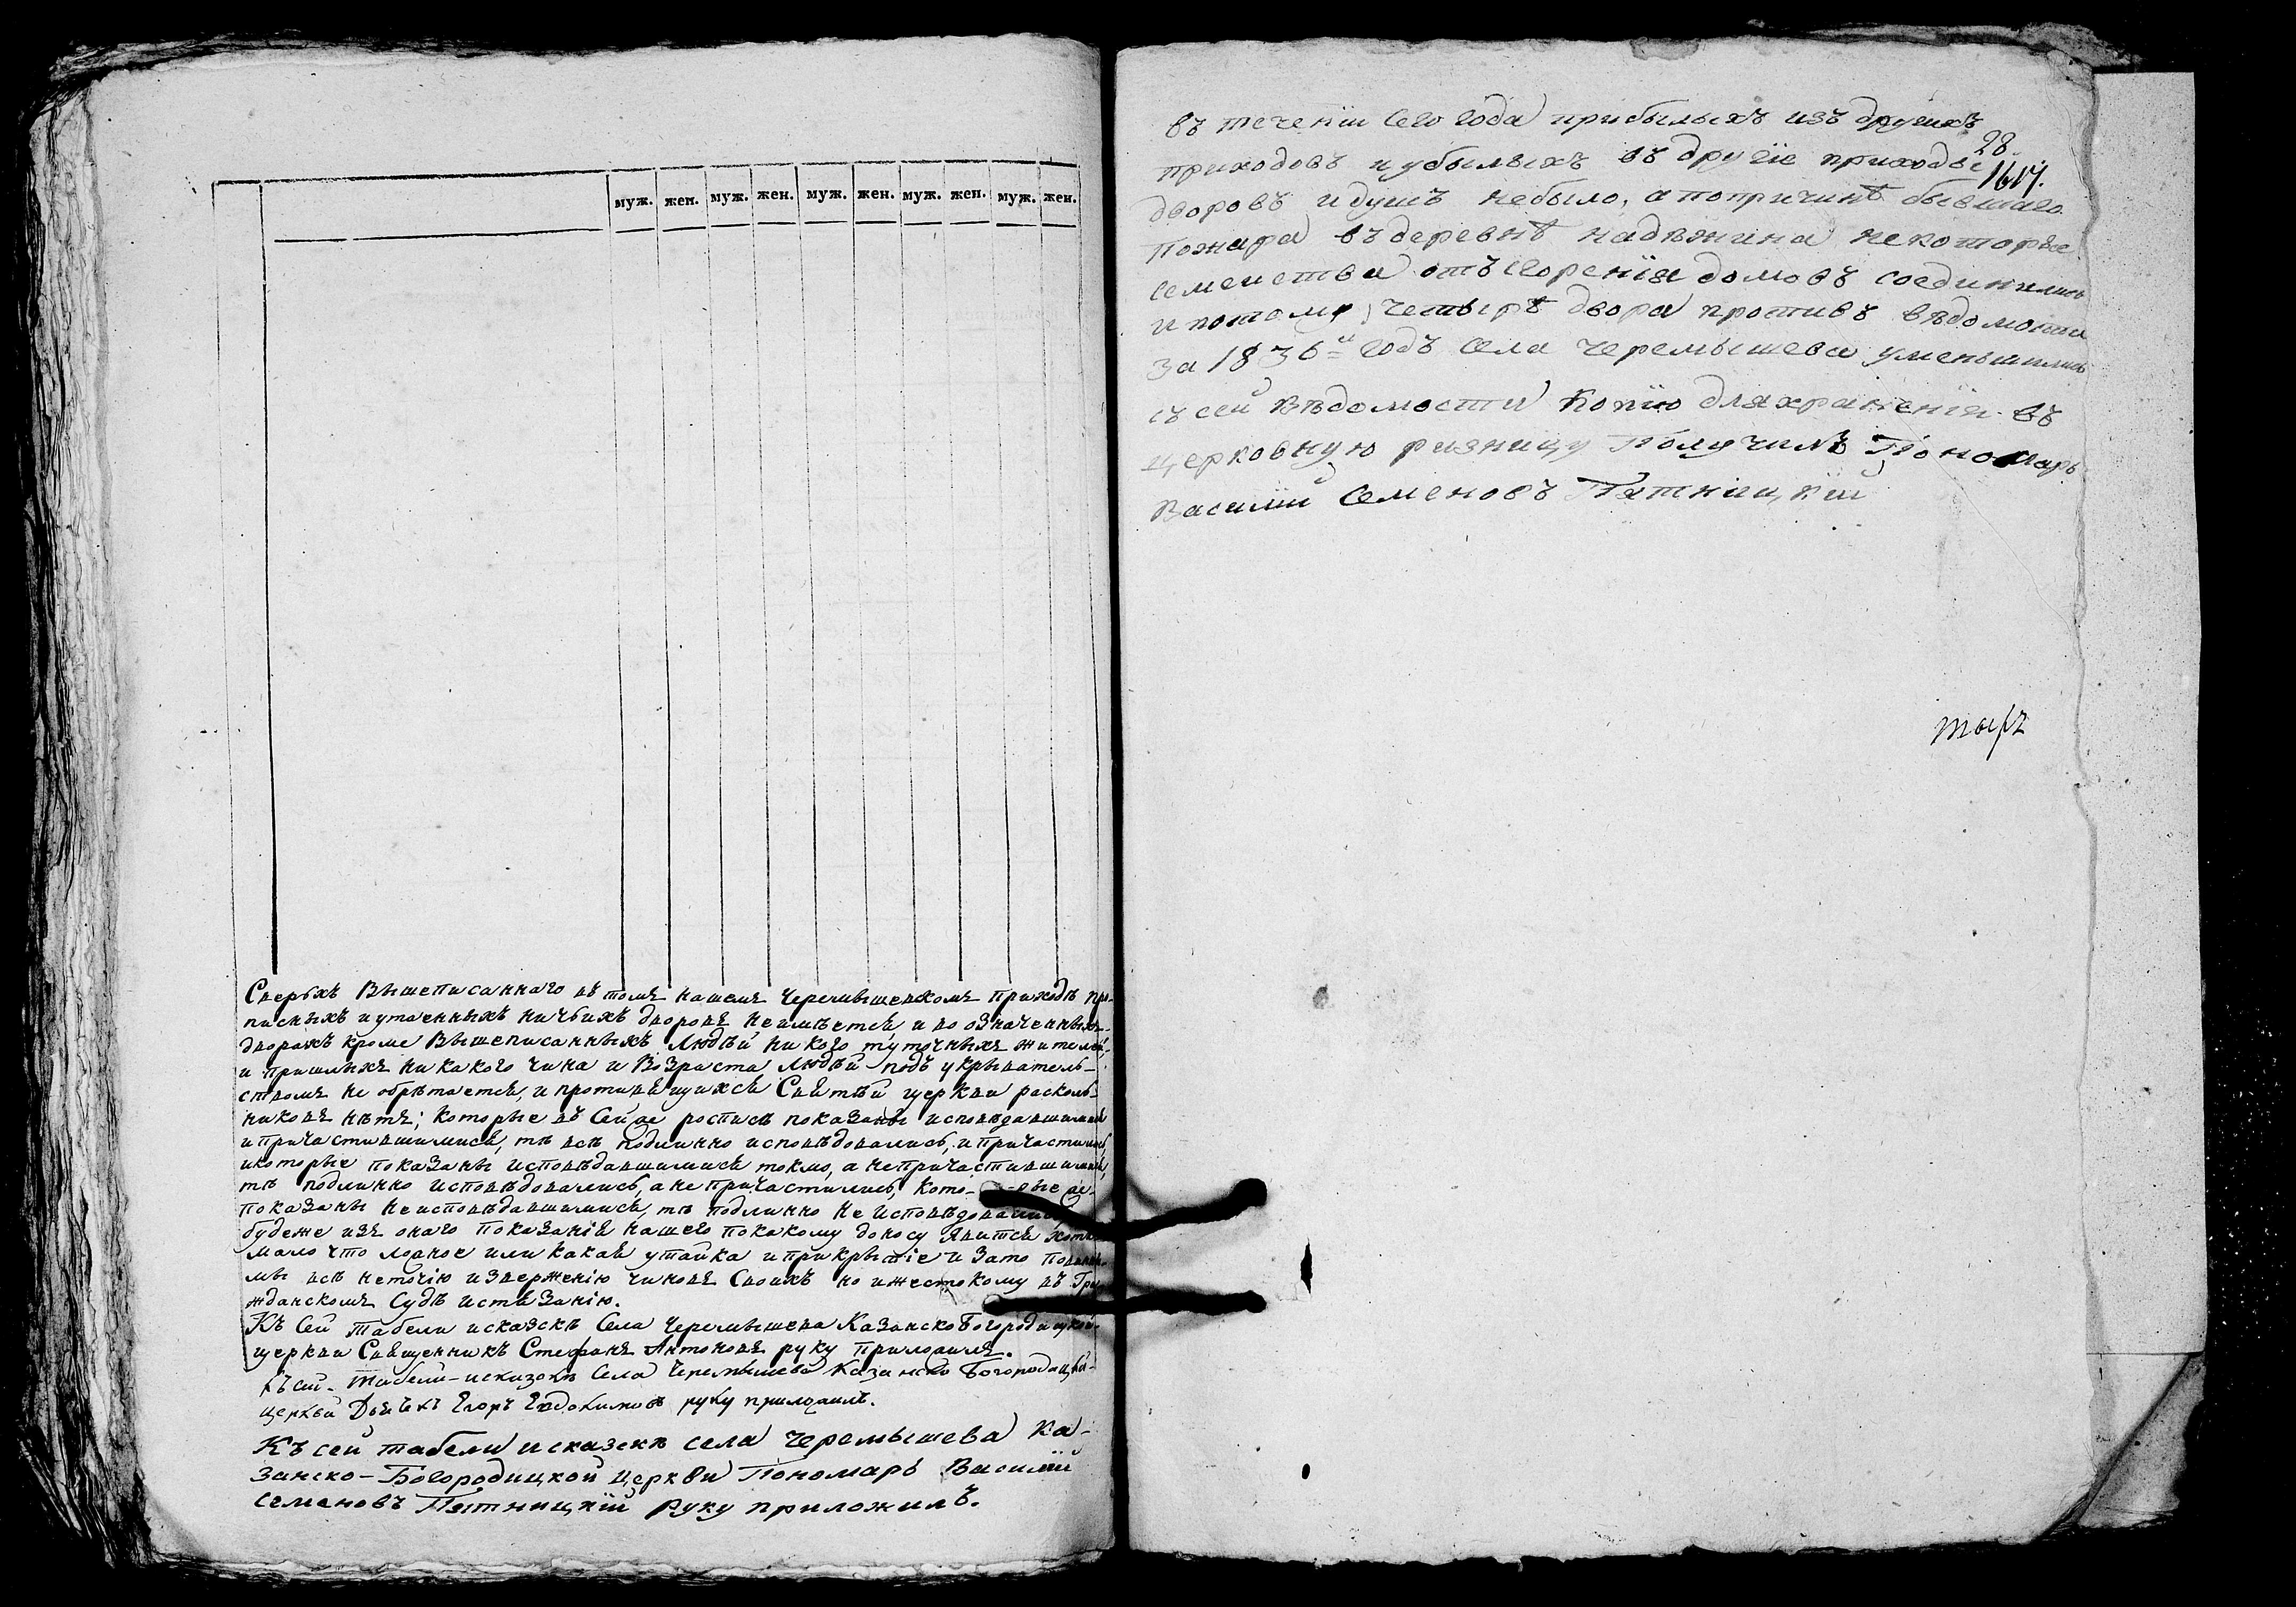 муж. жен. муж. жен. муж. жен. муж. жен. муж. жен.
Сверьхъ Вышеписаннаго въ томъ нашемъ Черемышевскомъ приходѣ про-
писныхъ и утаенныхъ ничьихъ дворовъ неимѣется, и во означенныхъ
дворахъ кроме Вышеписанныхъ Людѣй никого туточныхъ жителей,
и пришлыхъ никакого чина и Возраста Людѣй подъ укрывательь-
ствомъ не обрѣтается, и противящихся Святѣй церкви расколь-
никовъ нѣтъ; которые въ Сей же росписѣ показаны исповѣдавшимися
и причастившимися, тѣ всѣ подлинно исповѣдовались, и причастились,
икоторые показаны исповѣдавшимися токмо, а непричастившимися,
тѣ подлинно исповѣдовались, а не причастились, Кото-рые же
показаны Неисповѣдавшимися, тѣ подлинно Не исповѣдовались
будеже изъ онаго показанія нашего покакому доносу явится хотя
мало что ложное или какая утайка и прикрытіе и Зато повинны
мы всѣ неточію изверженію чиновъ Своихъ но ижестокому въ Гра-
жданскомъ Судѣ истязанію.
Къ Сей табели исказскѣ Села Черемышева КазанскоБогородицкой
церкви Священникъ Стефанъ Антоновъ руку приложилъ.
Къ сей табели-исказскѣ Села Черемышева Казанско Богородицкой
церкви Дьячекъ Егоръ Евдокимовъ руку приложилъ.
Къ сей табели исказскѣ села Черемышева Ка-
занско-Богородицкой церкви Пономарь Василій
Семеновъ Пятницкій руку приложилъ.
въ теченіи сего года прибылыхъ изъ другихъ
28.
приходовъ иубылыхъ въ другіе приходы
1617.
дворовъ идушъ небыло, а попричинѣ бывшаго
пожара въ деревнѣ надѣжкина некоторые
семейства отъ сгоренія домовъ соединились
ипотому четырѣ двора противъ вѣдомости
за 1836й годъ Села Черемышева уменьшились
съ сей вѣдомости Копію дляхраненія въ
церковную ризницу Получилъ Пономарь
Василій Семеновъ Пятницкій